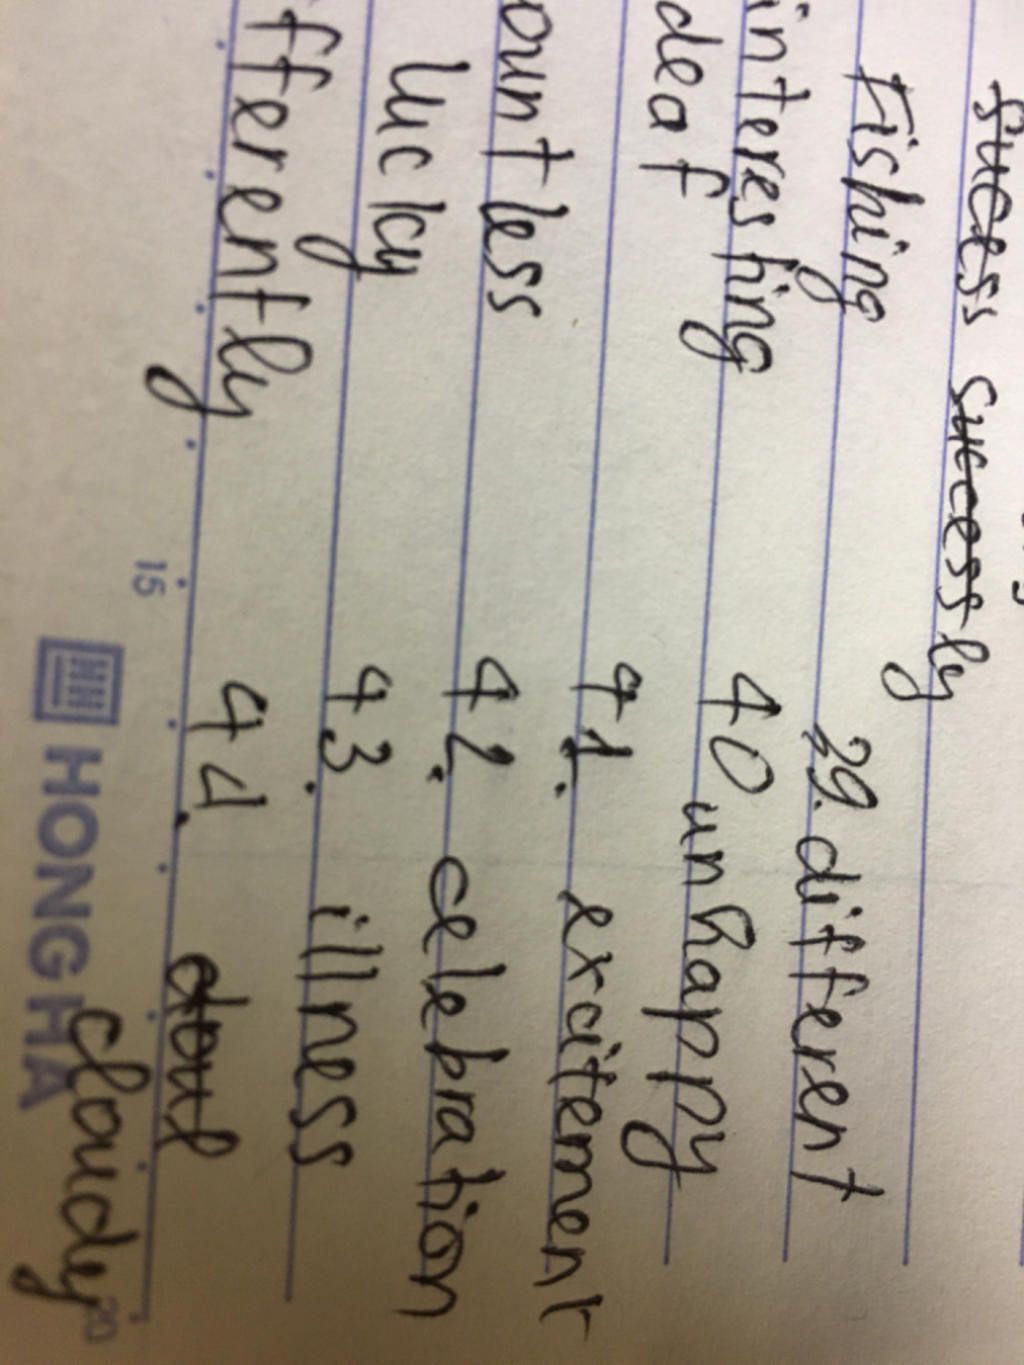 sucess successly
Fishing 39. different
interesting 40 unhappy
deaf 41. excitement
ountless 42. celebration
lucky 43. illness
fferently 44. cloudy
15 HONG HA 20